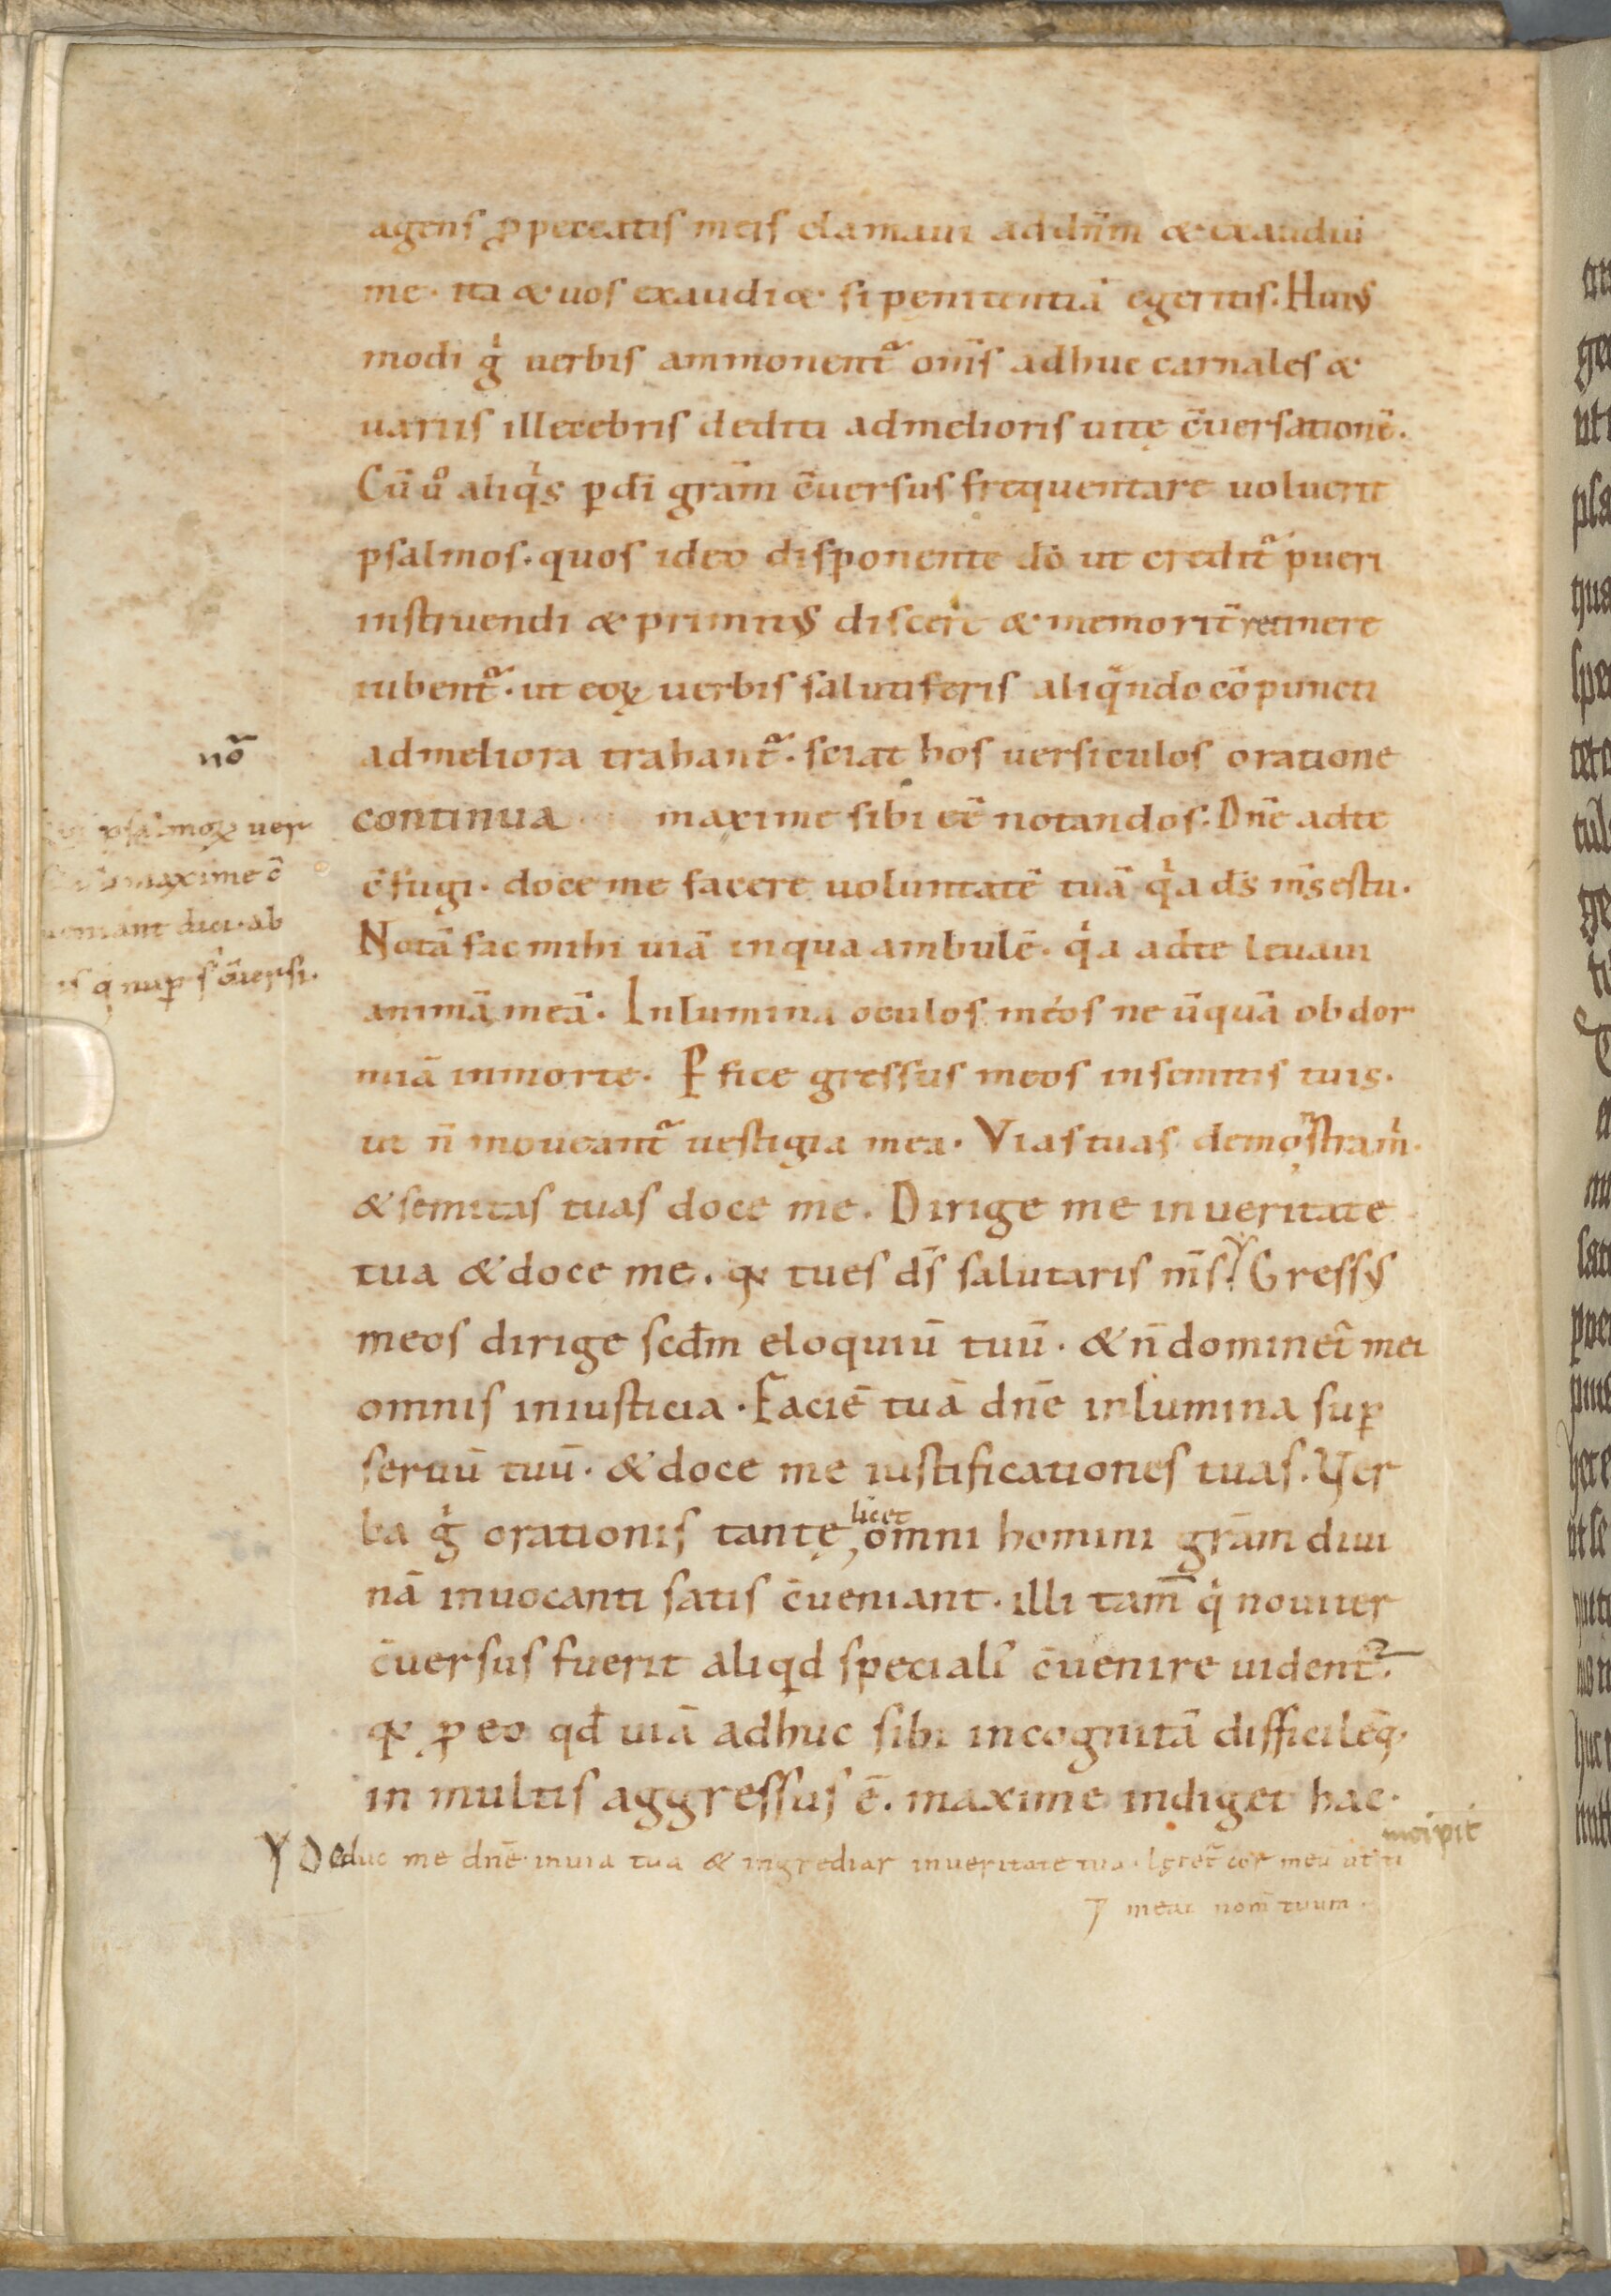 agens ꝓ peccatis meis clamaui ad dn̄m & exaudiui
me· ita & uos exaudi&· si penitentiā egeritis. Huiꝰ
modi gͥ uerbis ammonent᷑ om̄s adhuc carnales &
uariis illecebris dediti ad melioris uitę c̄uersationē.
Cū ů aliqͥs ꝑ dī grām c̄uersus frequentare uoluerit
psalmos· quos ideo disponente dō ut credit᷑ pueri
instruendi & primitꝰ discere & memorit̄ retinere
iubent᷑· ut eoꝝ uerbis salutiferis aliqͣndo cōpuncti
ad meliora trahant᷑· sciat hos uersiculos oratione
continua maxime sibi eē notandos. Dn̄e ad te
c̄fugi· doce me facere uoluntatē tuā qͥa ds̄ ms̄ es tu.
Notā fac mihi uiā in qua ambulē· qͥa ad te leuaui
animā meā. Inlumina oculos meos ne ūquā obdor
miā in morte. Ꝑfice gressus meos in semitis tuis.
ut n̄ moueant᷑ uestigia mea. Vias tuas demonstra m̄.
& semitas tuas doce me. Dirige me in ueritate
tua & doce me. qꝛ tu es ds̄ salutaris ms̄. Gressꝰ
meos dirige scd̄m eloquiū tuū· & n̄ dominet᷑ mei
omnis iniusticia. Faciē tuā dn̄e inlumina suꝑ
seruū tuū· & doce me iustificationes tuas. Ver
ba gͥ orationis tantę, omni homini grām diui
licet
nā inuocanti satis c̄ueniant· illi tam̄ qͥ nouiter
c̄uersus fuerit aliqͥd speciali᷑ c̄uenire uident᷑.
qꝛ ꝓ eo qd̄ uiā adhuc sibi incognitā difficilēq·
in multis aggressus ē. maxime indiget hac·
Y Deduc me dn̄e in uia tua & ingrediar in ueritate tua. Lętet᷑ cor meū ut ti
meat nom̄ tuum.
nō
psalmoꝝ uer
maxime c̄
ueniant dici· ab
is qͥ nuꝑ sͥ c̄uersi.